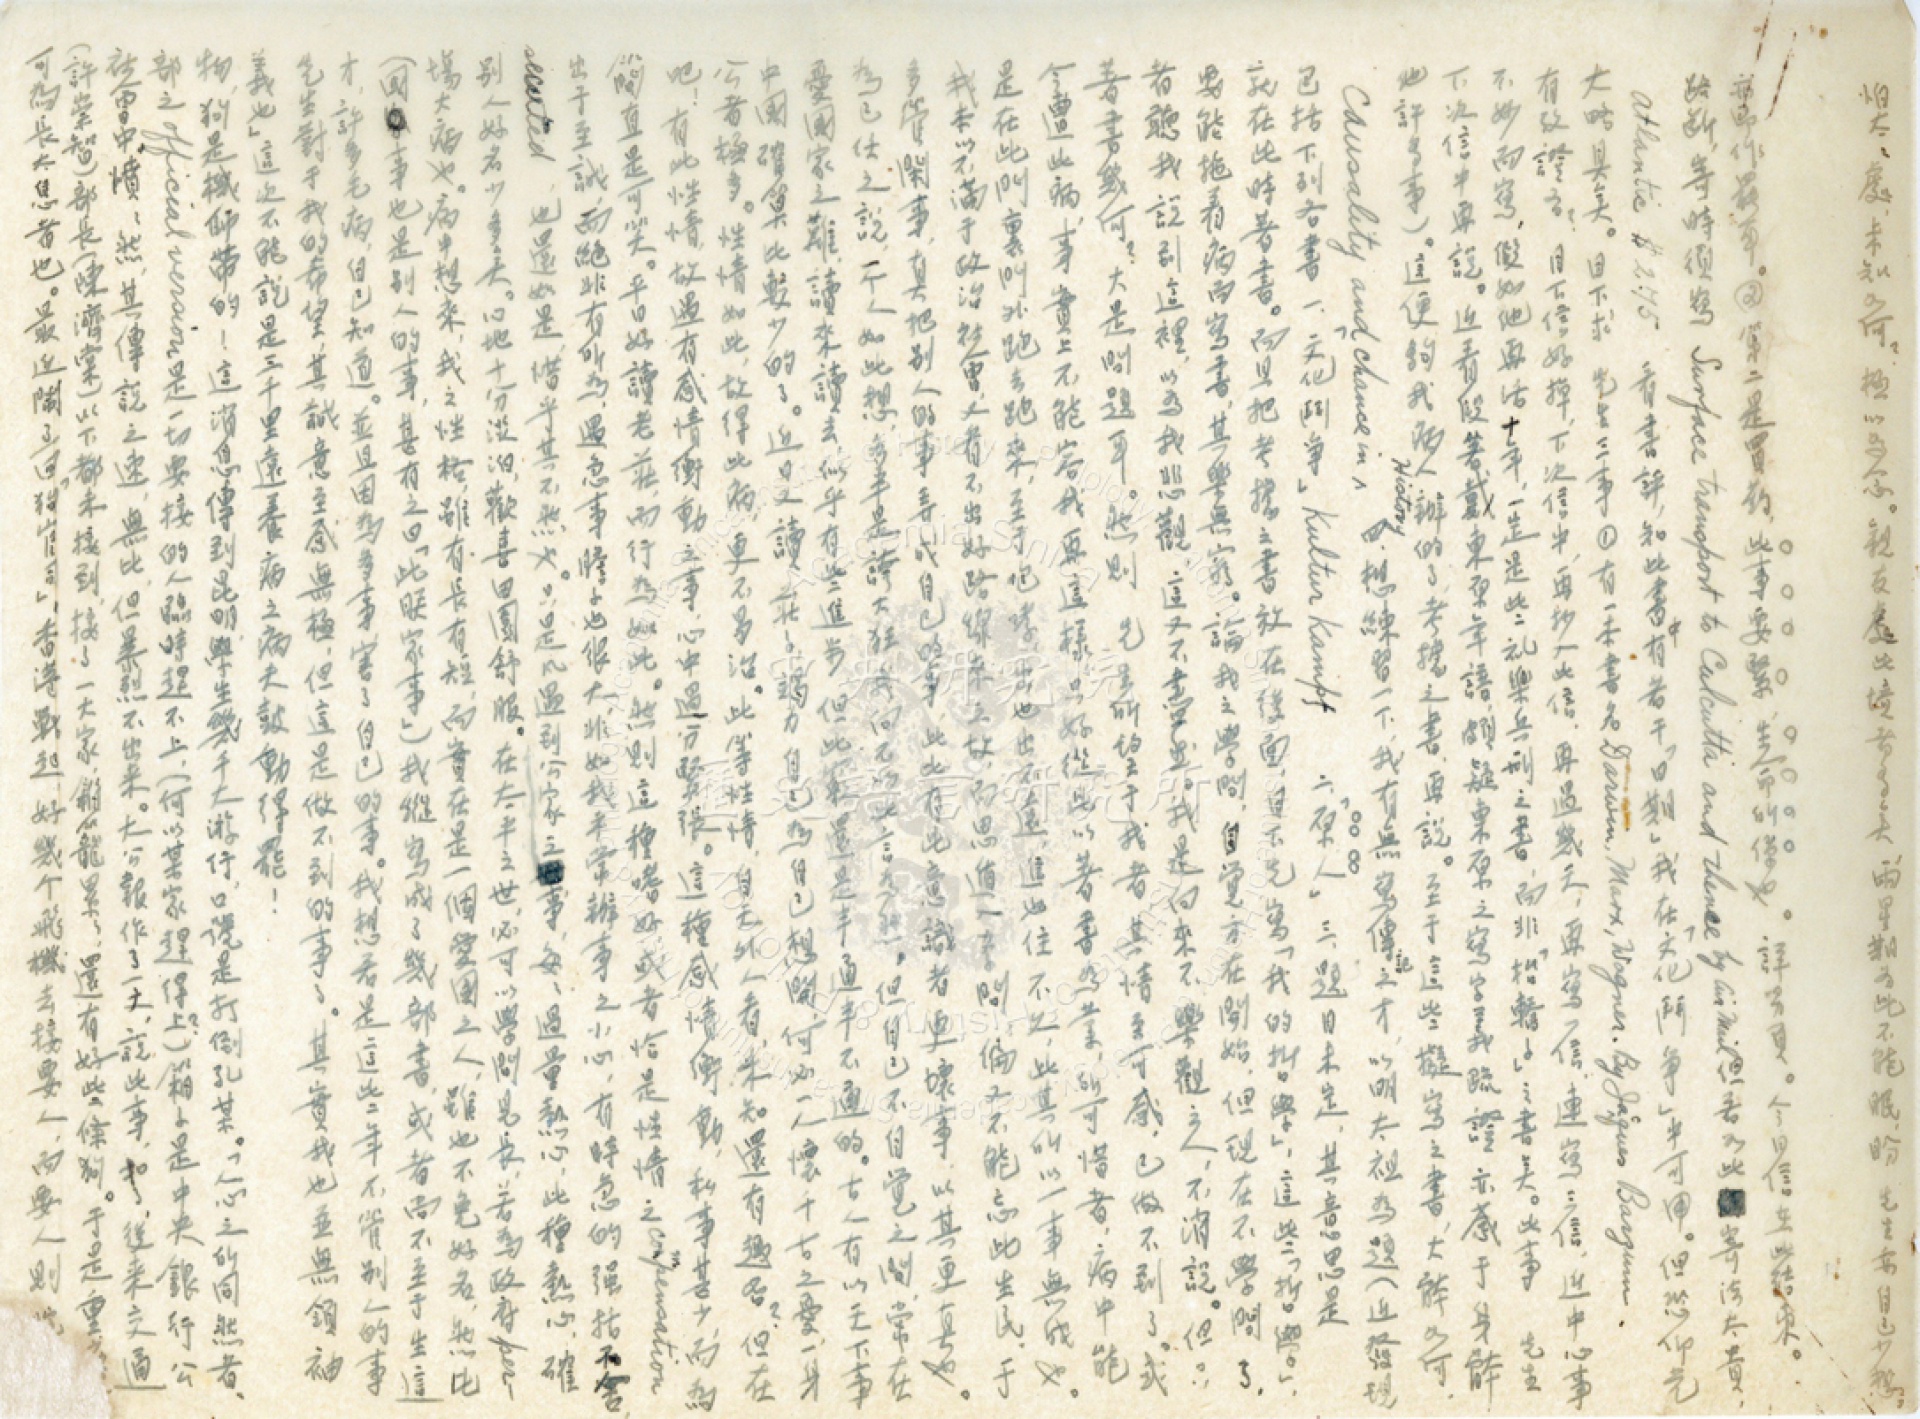 怕太太處,未知如何?極以為念。親友處此境者多矣,兩星期為此不能眠,盼 先生安自己少想
亦即作最□耳。②第二是買藥,此事要緊,生命所繫也。詳另頁。今日信在此結束。
路斷,寄時須寫 Surface transport to Calcutta and thence by air mail 但若如此寄法太貴,
Atlantic $2.75 看書評,知此書中有若干「日期」我在「文化鬥爭」中可用。但恐仰先
大略具矣。目下求 先生三事 ①有一本書名 Darwin, Marx, Wagner. By Jaques Barzum.
有效證否?目下信好掉,下次信中,再抄入此信,再過幾天,再寫一信,連寫三信,近中心事
不妙而寫,假如他再活十年,一定是些禮樂兵刑之書,而非「招轎子」之書矣。此事 先生
下次信中再說。近看段著戴東原年譜,頗疑東原之寫字義疏證亦感于身體
也許多事)。這便夠我兩人辦的了,考據之書,再說。至于這些擬寫之書,大體如何,
Causality and chance in History 四、想練習一下,我有無寫傳記之才,以明太祖為題(近發現
已括下列各書 一、「文化鬥爭」 Kultur Kampf 二、「原人」 三、題目未定,其意思是
就在此時著書。而且把考據之書放在後面,目下先寫「我的哲學」,這些「哲學」,
要能拖着病而寫書,其樂無窮。論我之學問,自覺方在開始,但現在不學問了,
者聽我說到這裡,以為我悲觀,這又不盡然。我是向來不樂觀之人,不消說。但
著書幾何?大是問題耳。然則 先生所望于我者,其情至可感,已做不到了。或
今遭此病,事實上不能容我再這樣,只好從此以著書為業,所可惜者,病中能
是在此叫裏叫外跑去跑來,至于咆哮,出也出不遠,進也住不久,此其所以一事無成也。
我本以不滿于政治社會,又看不出好路線來之故,而思遁入學問,偏又不能忘此生民,于
多管閑事,真把別人的事弄成自己的事,此比有此意識者更壞事,以其更真也。
為己任之說,一个人如此想,多半是誇大狂,我向不以此言為然。但自己不自覺之間,常在
憂國家之難,讀來讀去,似乎有些進步,但此來還是半通半不通的。古人有以天下事
中國確算比較少的了。近日又讀莊子,竭力自己為自己想開,何必一人懷千古之憂,一身
公者極多。性情如此,故得此病,更不易治。此等性情,自天外人看,未知還有趣否?但在
吧!有此性情,故遇有感情衝動之事,心中過分緊張。這種感情衝動,私事甚少,而為
簡直是可笑。平日好讀老莊,而行為如此。然則這種嗜好或者恰是性情之 compensation
出于至誠,而絕非有所為,遇急事膽子也很大,非如我平常辦事之小心,有時急的強括不舍,
secuted,也還如是,惜乎其不然也。只是凡遇到公家之事,每每過量熱心,此種熱心,確
別人好名少多矣。心地十分淡泊,歡喜田園舒服。在太平之世,必可以學問見長,若為政府 per
場大病也。病中想來,我之性格,雖有長有短,而實在是一個愛國之人,雖也不免好名,然比
(國事也是別人的事,甚有之曰「此朕家事」)我縱寫成了幾部書,或者尚不至于生這
才,許多毛病,自己知道。並且因為多事,害了自己的事。我想若是這些年不管別人的事
先生對于我的希望,其誠意至感無極,但這是做不到的事了。其實我也並無領袖
義也」這次不能說是三千里遠養病之病夫鼓動得罷!
物,狗是機師帶的!這消息傳到昆明,學生幾千大游行,口號是打倒孔某。「人心之所同然者,
部之 official version 是一切要接的人臨時趕不上,(何以某家趕得上?)箱子是中央銀行公
社會中憤憤然,其傳說之速,無比,但暴烈不出來。大公報作了一文,說此事,扣了,後來交通
(許崇智)部長(陳濟棠)以下都未接到,接了一大家,箱籠累累,還有好些條狗。于是重
可為長太息者也。最近鬧了一回「狗官司」,香港戰起,好幾个飛機去接要人,而要人則